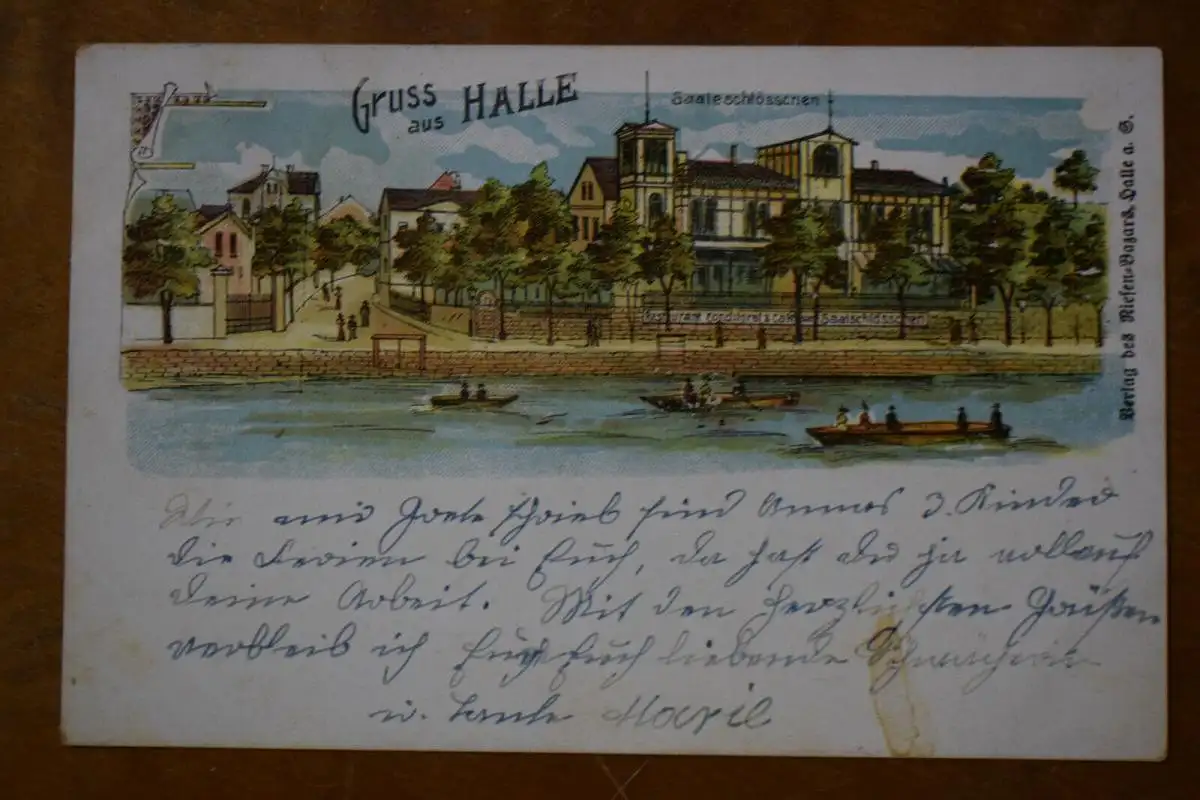 Gruss
aus HALLE
Saaleschlösschen
Restaurant Conditorei & Café zum Saalschlösschen
Verlag des Riesen-Bazars, Halle a. S.
Wie mir Grete schrieb sind Annas 3. Kinder
die Ferien bei Euch, da hast du ja vollauf
deine Arbeit. Mit den herzlichsten Grüßen
verbleib ich Euch liebende Schwägerin
u. Tante